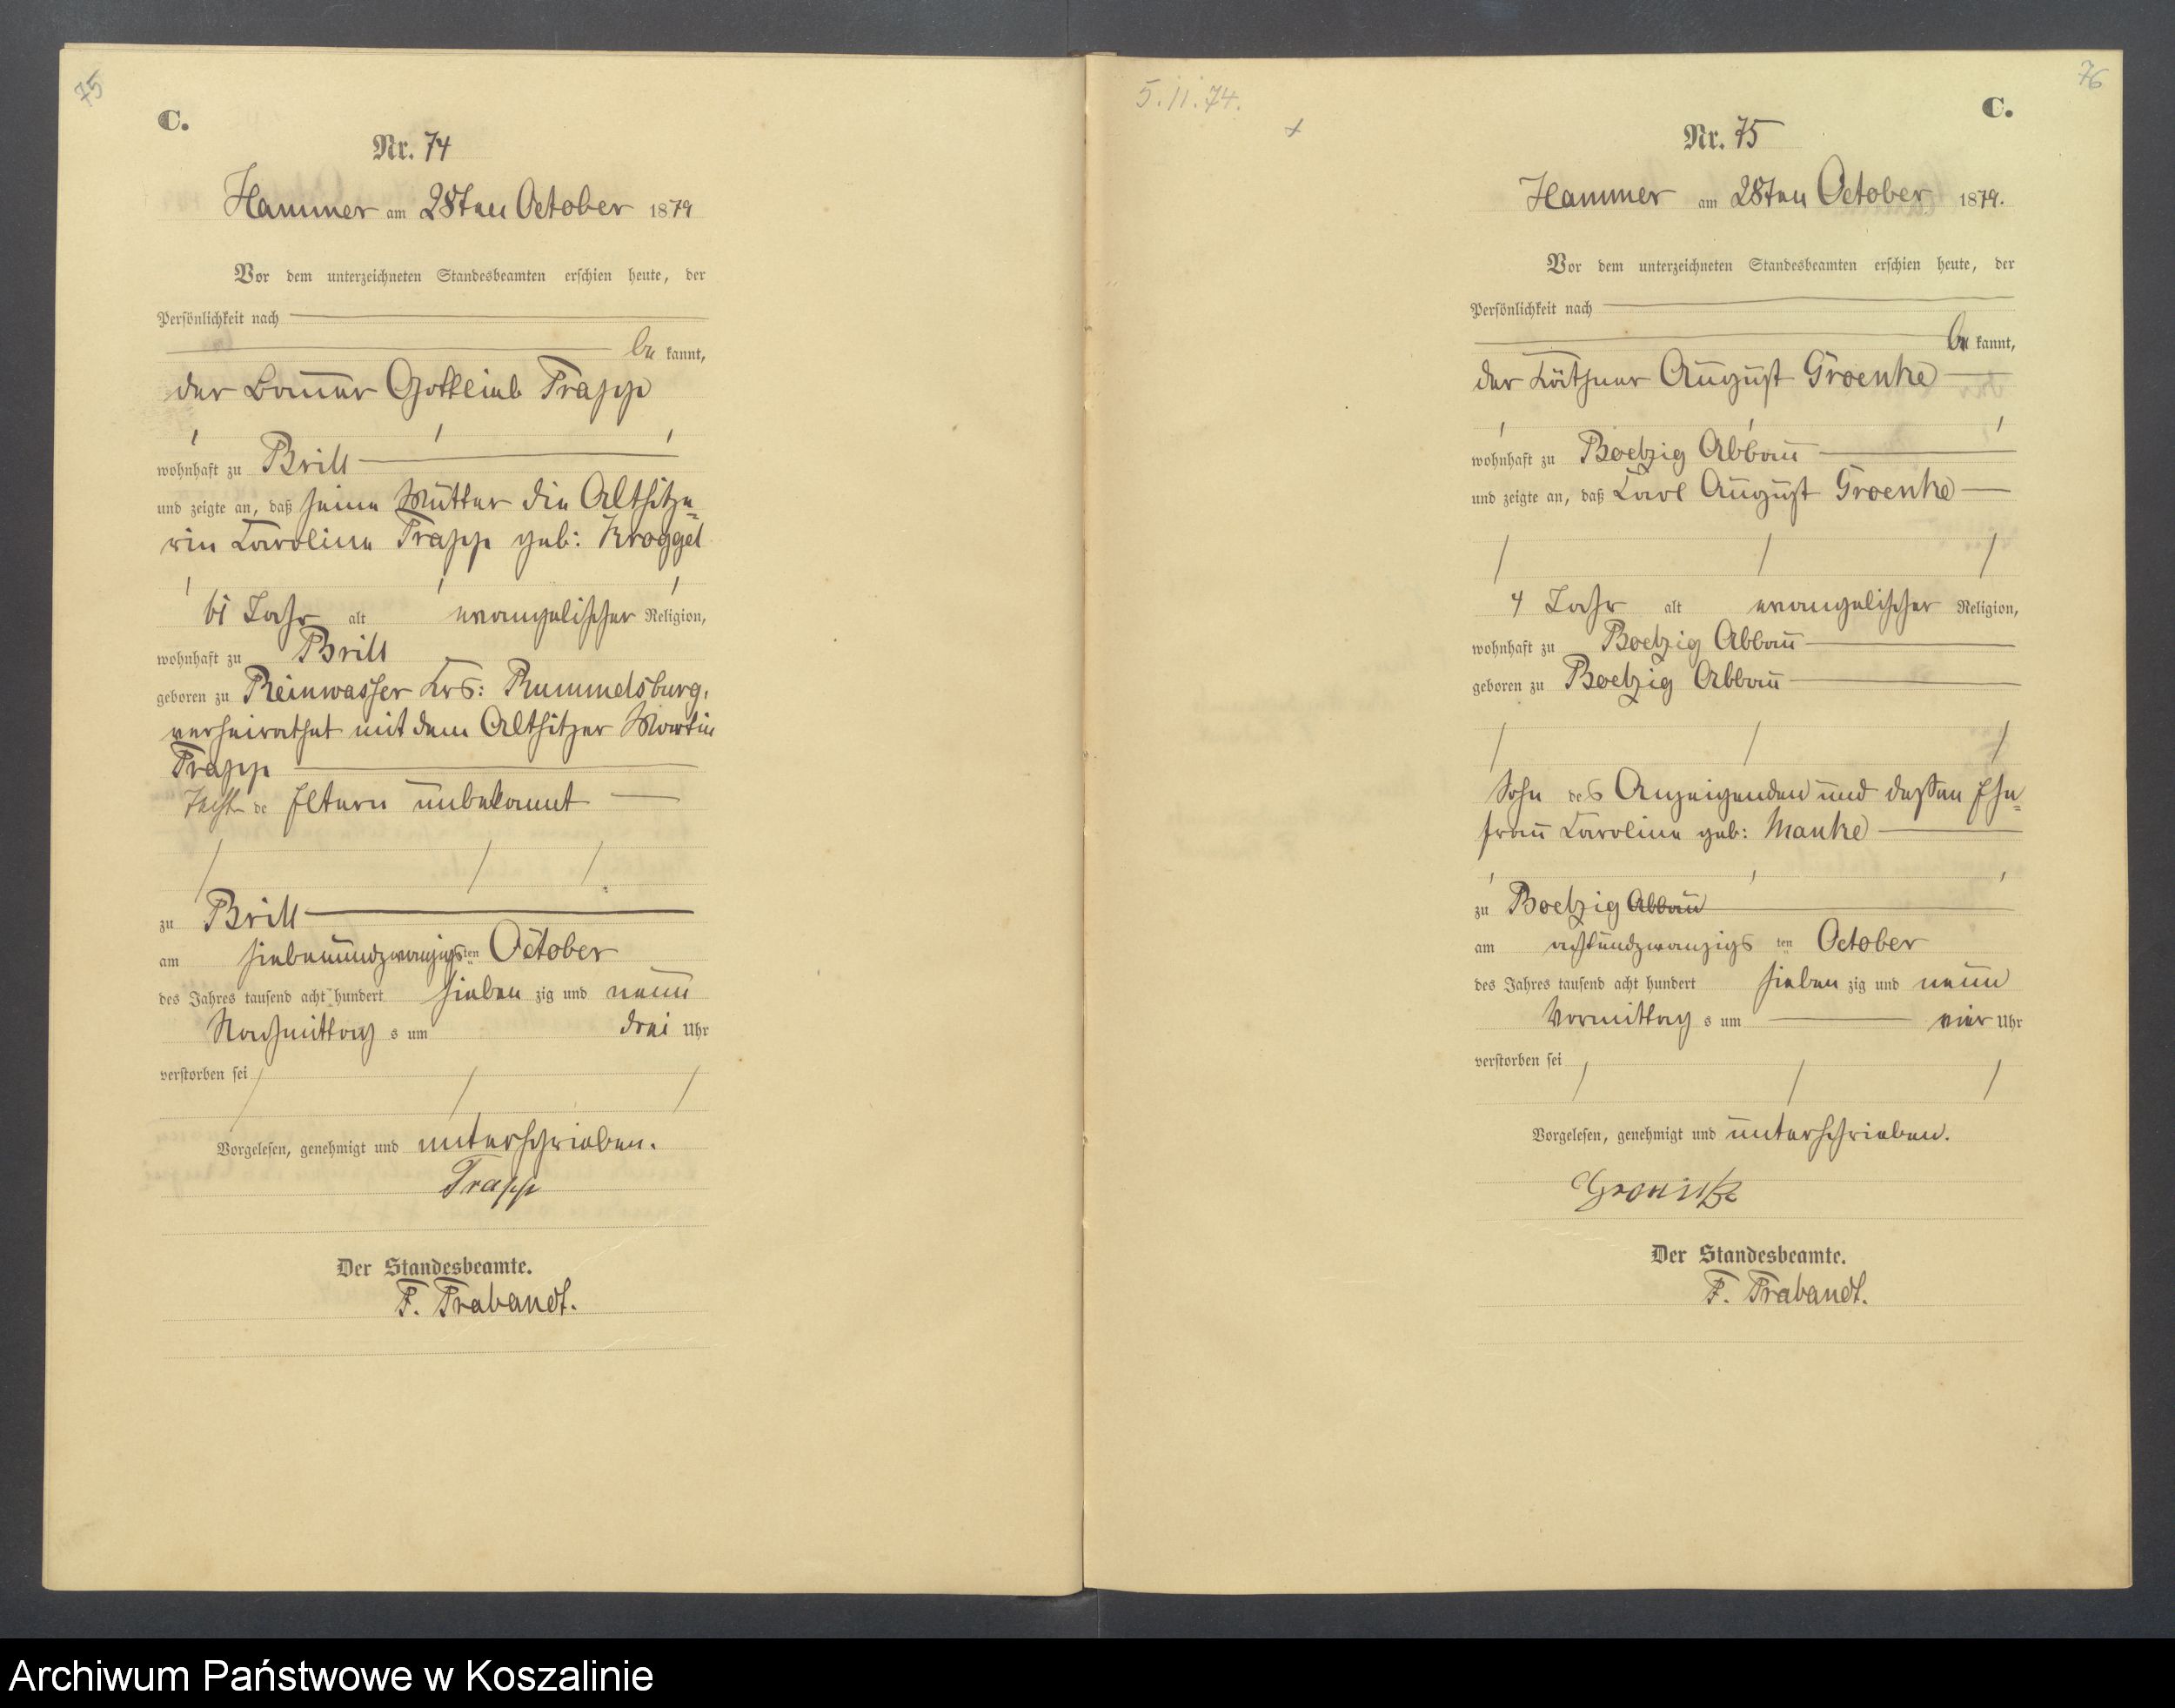 75
C.
Nr. 74
Hammer am 28ten October 1879
Vor dem unterzeichneten Standesbeamten erschien heute, der
Persönlichkeit nach
be kannt,
der Bauer Gottlieb Trapp
wohnhaft zu Brill
und zeigte an, daß seine Mutter die Altsitze-
rin Caroline Trapp geb: Kroggel
61 Jahr alt evangelischer Religion,
wohnhaft zu Brill
geboren zu Reinwasser Krs: Rummelsburg,
verheirathet mit dem Altsitzer Martin
Trapp
de Eltern unbekannt
zu Brill
am siebenundzwanzigsten October
des Jahres tausend acht hundert sieben zig und neun
Nachmittag s um drei Uhr
verstorben sei
Vorgelesen, genehmigt und unterschrieben.
Trapp
Der Standesbeamte.
F. Trabandt.
5.11.74.
76
C.
Nr. 75
Hammer am 28ten October 1879.
Vor dem unterzeichneten Standesbeamten erschien heute, der
Persönlichkeit nach
be kannt,
der Käthner August Groenke
wohnhaft zu Boetzig Abbau
und zeigte an, daß Carl August Groenke
4 Jahr alt evangelischer Religion,
wohnhaft zu Boetzig Abbau
geboren zu Boetzig Abbau
Sohn des Anzeigenden und dessen Ehe-
frau Caroline geb: Manke
zu Boetzig Abbau
am achtundzwanzigs ten October
des Jahres tausend acht hundert sieben zig und neun
Vormittag s um vier Uhr
verstorben sei
Vorgelesen, genehmigt und unterschrieben.
Der Standesbeamte.
F. Trabandt.
Archiwum Państwowe w Koszalinie